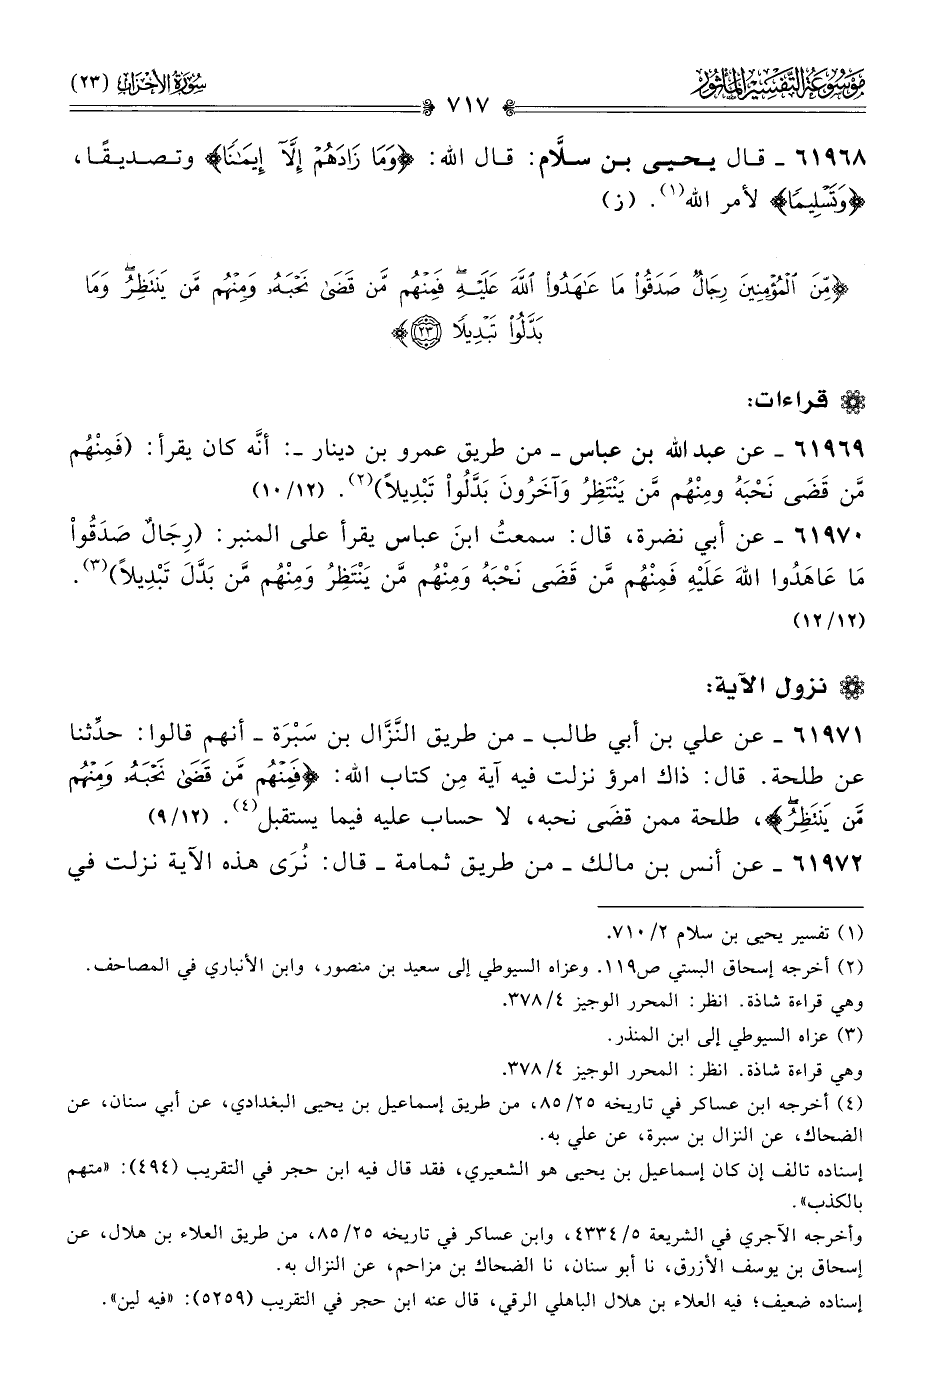 موسوعة التفسير المأثور
سورة الأحزاب (٢٣)
٧١٧
٦١٩٦٨ ـ قال يحيى بن سلَّام: قال الله: ﴿وَمَا زَادَهُمْ إِلَّآ إِيمَٰنٗا﴾ وتصديقًا،
﴿وَتَسْلِيمٗا﴾ لأمر الله(١). (ز)
﴿مِّنَ ٱلْمُؤْمِنِينَ رِجَالٞ صَدَقُوا۟ مَا عَٰهَدُوا۟ ٱللَّهَ عَلَيْهِۖ فَمِنْهُم مَّن قَضَىٰ نَحْبَهُۥ وَمِنْهُم مَّن يَنتَظِرُۖ وَمَا
بَدَّلُوا۟ تَبْدِيلٗا ٢٣﴾
قراءات:
٦١٩٦٩ ـ عن عبد الله بن عباس ـ من طريق عمرو بن دينار ـ: أنَّه كان يقرأ: (فَمِنْهُم
مَّن قَضَى نَحْبَهُ ومِنْهُم مَّن يَنْتَظِرُ وَآخَرُونَ بَدَّلُواْ تَبْدِيلاً)(٢). (١٠/١٢)
٦١٩٧٠ ـ عن أبي نضرة، قال: سمعتُ ابنَ عباس يقرأ على المنبر: (رِجَالٌ صَدَقُواْ
مَا عَاهَدُوا اللهَ عَلَيْهِ فَمِنْهُم مَّن قَضَى نَحْبَهُ وَمِنْهُم مَّن يَنْتَظِرُ وَمِنْهُم مَّن بَدَّلَ تَبْدِيلاً)(٣).
(١٢/١٢)
نزول الآية:
٦١٩٧١ ـ عن علي بن أبي طالب ـ من طريق النَّزَّال بن سَبْرَة ـ أنهم قالوا: حدِّثنا
عن طلحة. قال: ذاك امرؤ نزلت فيه آية مِن كتاب الله: ﴿فَمِنْهُم مَّن قَضَىٰ نَحْبَهُۥ وَمِنْهُم
مَّن يَنتَظِرُۖ﴾، طلحة ممن قضى نحبه، لا حساب عليه فيما يستقبل(٤). (٩/١٢)
٦١٩٧٢ ـ عن أنس بن مالك ـ من طريق ثمامة ـ قال: نُرَى هذه الآية نزلت في
(١) تفسير يحيى بن سلام ٧١٠/٢.
(٢) أخرجه إسحاق البستي ص١١٩. وعزاه السيوطي إلى سعيد بن منصور، وابن الأنباري في المصاحف.
وهي قراءة شاذة. انظر: المحرر الوجيز ٣٧٨/٤.
(٣) عزاه السيوطي إلى ابن المنذر.
وهي قراءة شاذة. انظر: المحرر الوجيز ٣٧٨/٤.
(٤) أخرجه ابن عساكر في تاريخه ٨٥/٢٥، من طريق إسماعيل بن يحيى البغدادي، عن أبي سنان، عن
الضحاك، عن النزال بن سبرة، عن علي به.
إسناده تالف إن كان إسماعيل بن يحيى هو الشعيري، فقد قال فيه ابن حجر في التقريب (٤٩٤): «متهم
بالكذب».
وأخرجه الآجري في الشريعة ٤٣٣٤/٥، وابن عساكر في تاريخه ٨٥/٢٥، من طريق العلاء بن هلال، عن
إسحاق بن يوسف الأزرق، نا أبو سنان، نا الضحاك بن مزاحم، عن النزال به.
إسناده ضعيف؛ فيه العلاء بن هلال الباهلي الرقي، قال عنه ابن حجر في التقريب (٥٢٥٩): «فيه لين».